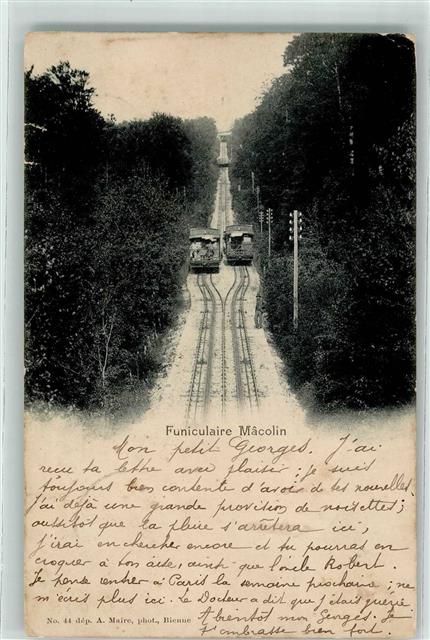 Funiculaire Mâcolin
Mon petit Georges. J'ai
recu ta lettre avec plaisir : je suis
toujours bien contente d'avoir de tes nouvelles.
J'ai déjà une grande provision de noisettes ;
aussitôt que la pluie s'arrêtera ici,
j'irai en chercher encore et tu pourras en
croquer à ton aise, ainsi que l'oncle Robert.
Je pense rentrer à Paris la semaine prochaine ; ne
m'écris plus ici. Le Docteur a dit que j'étais guérie
No. 44 dép. A. Maire, phot., Bienne
A bientôt mon Georges. Je
t'embrasse bien fort.